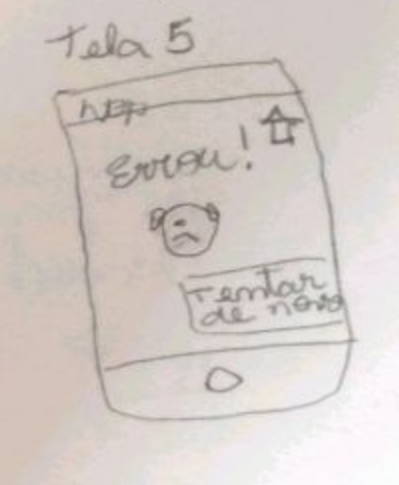 Tela 5
Errou!
Tentar
de novo